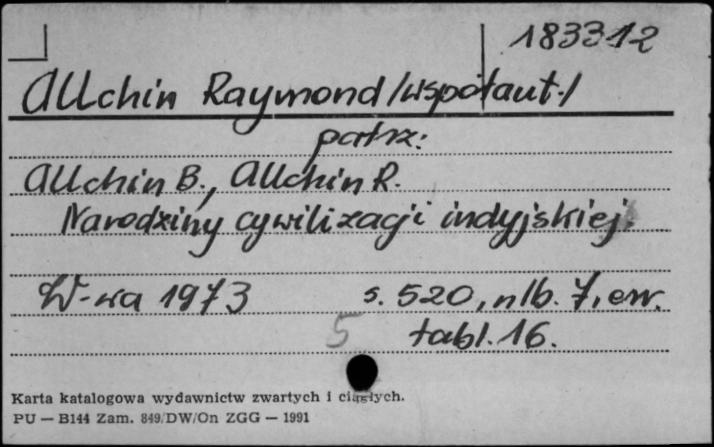 183312
Allchin Raymond /współaut./
patrz:
Allchin B., Allchin R.
Narodziny cywilizacji indyjskiej.
W-wa 1973 s. 520, nlb. 7, err.
5 tabl. 16.
Karta katalogowa wydawnictw zwartych i ciągłych.
PU — B144 Zam. 849/DW/On ZGG — 1991